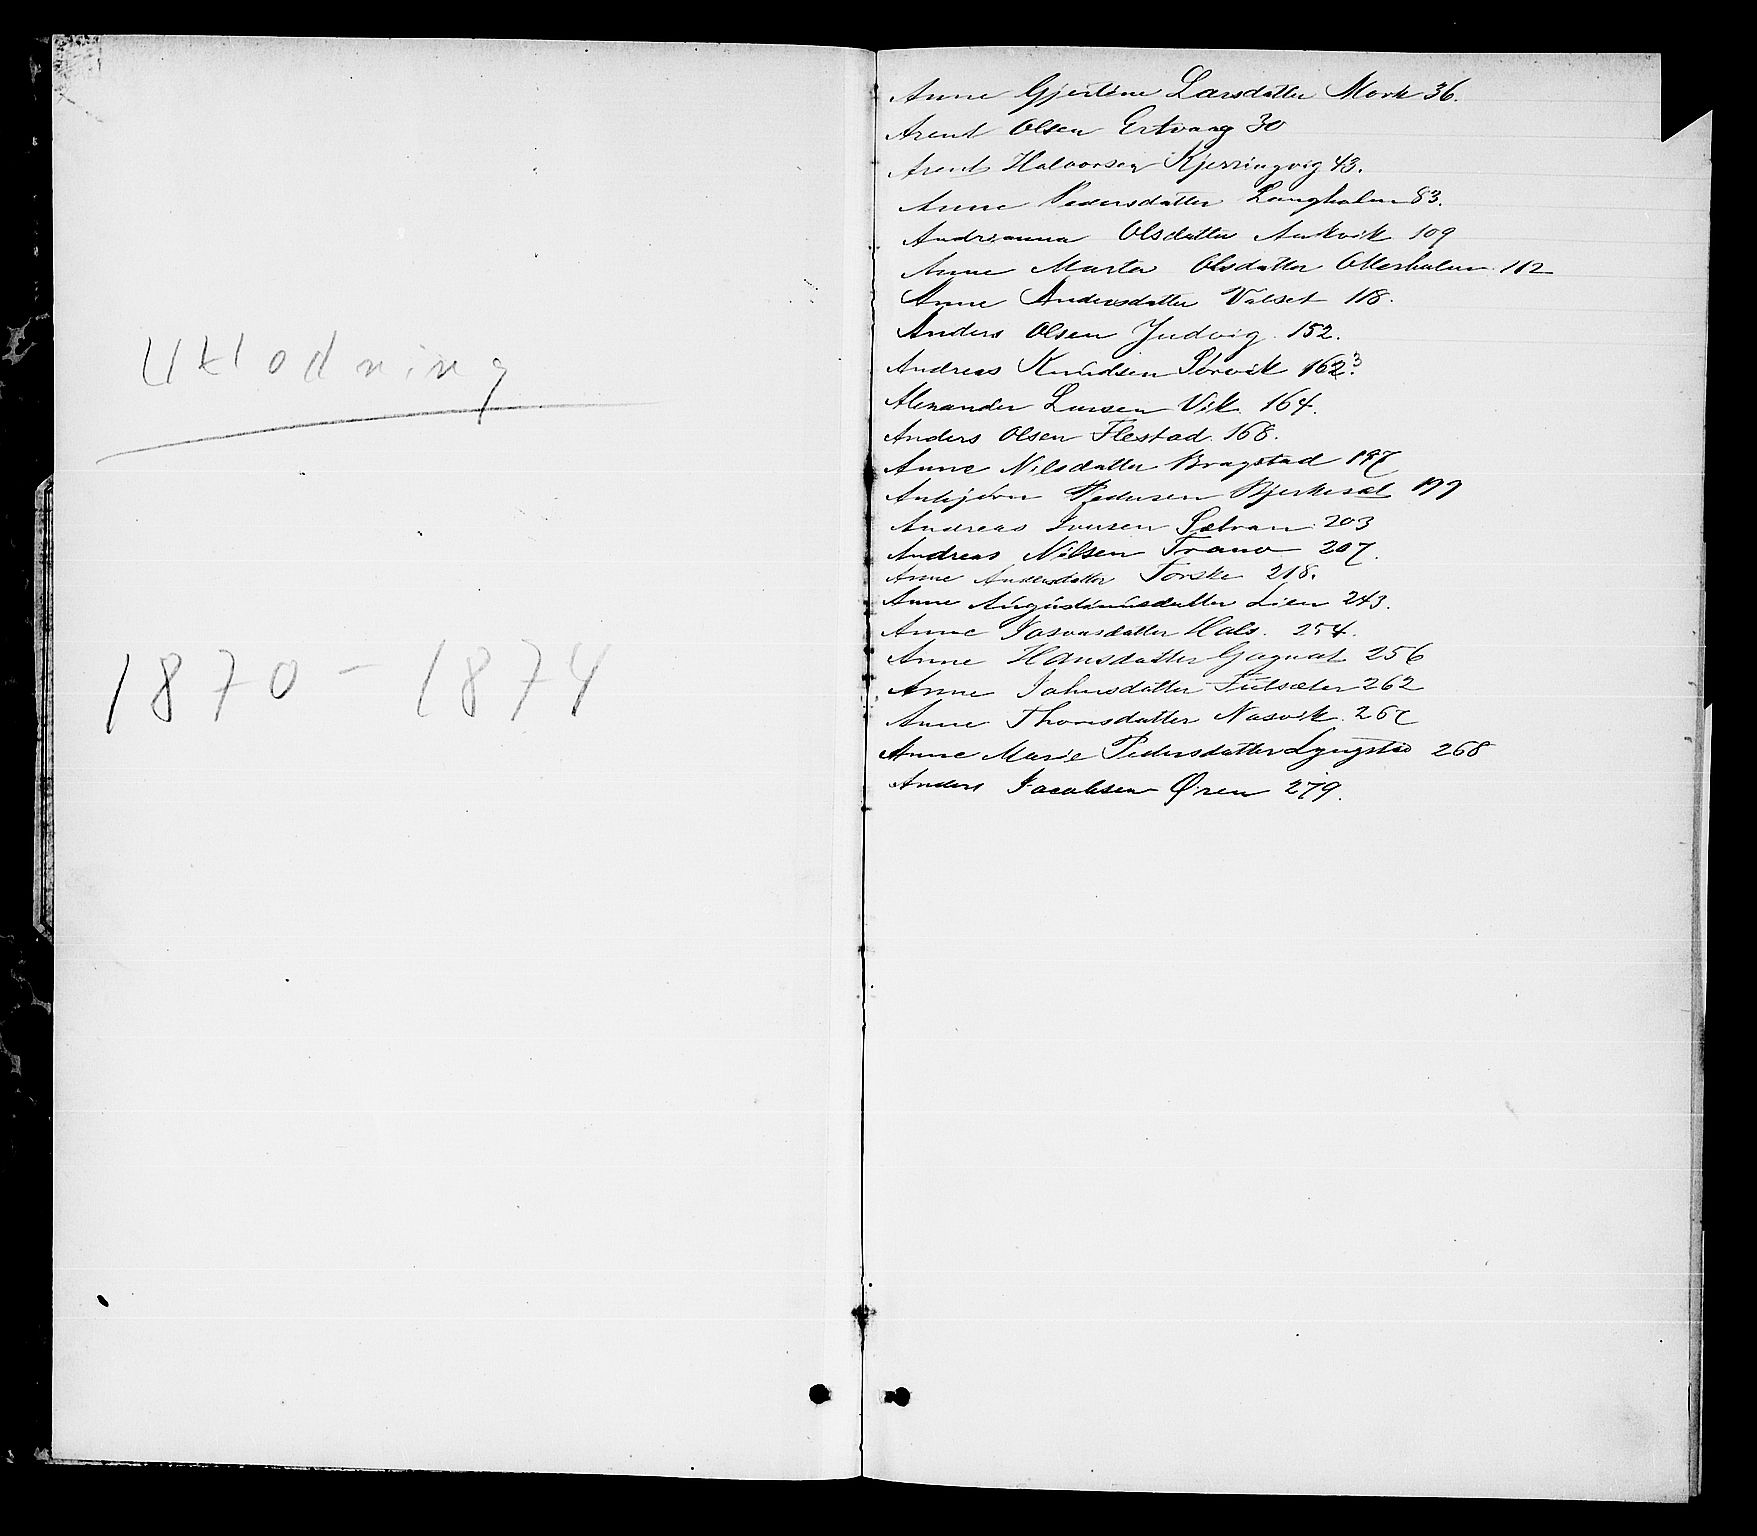 Utlodning
1870 - 1874
Anne Gjertine Larsdatter Mork 36.
Arent Olsen Ertvaag 30
Arent Halvorsen Kjerringvig 43.
Anne Pedersdatter Langholm 83.
Andrianna Olsdatter Aukvik 109
Anne Marta Olsdatter Otterholm 112
Anne Andersdatter Valset 118.
Anders Olsen Judvig. 152.
Andreas Knudsen Storvik 162.3
Alexander Larsen Vik. 164.
Anders Olsen Flestad. 168.
Anne Nilsdatter Bragstad 197
Anbjørn Pedersen Bjerkesæt 199
Andreas Iversen Sætran 203
Andreas Nilsen Tranvo 207.
Anne Andersdatter Torske 218.
Anne Augustinusdatter Lien 243.
Anne Hals. 254.
Anne Hansdatter Gagnat 256
Anne Johnsdatter 262
Anne Thomsdatter Nasvik. 267
Anne Marie Pedersdatter Lyngstad 268
Anders Jacobsen Øren 279.